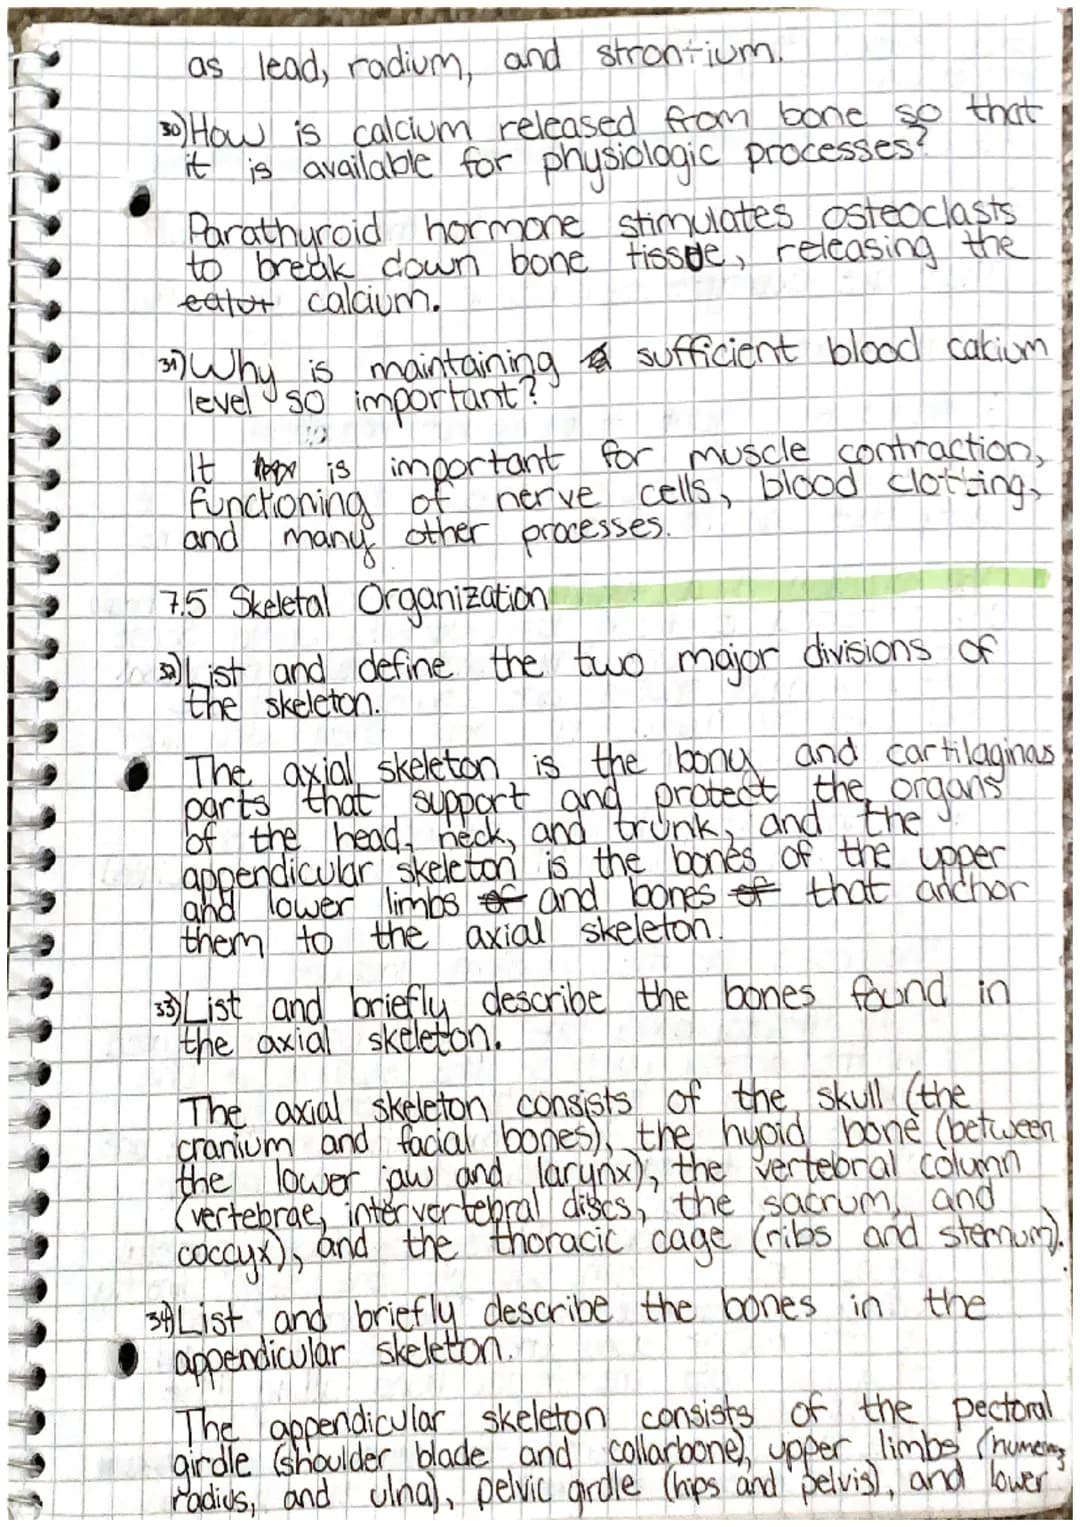 as lead, radium, and strontium.
30) How is calcium released from bone so that
it is available for physiologic processes?
Parathyroid hormone stimulates osteoclasts
to break down bone tissue, releasing the
calcium.
31) Why is maintaining sufficient blood calcium
level so important?
It is important for muscle contraction,
functioning of nerve cells, blood clotting,
and many other processes.
7.5 Skeletal Organization
32) List and define the two major divisions of
the skeleton.
The axial skeleton is the bony and cartilaginas
parts that support and protect the organs
of the head, neck, and trunk, and the
appendicular skeleton is the bones of the upper
and lower limbs of and bones of that anchor
them to the axial skeleton.
33) List and briefly describe the bones found in
the axial skeleton.
The axial skeleton consists of the skull (the
cranium and facial bones), the hyoid bone (between
the lower jaw and larynx), the vertebral column
(vertebrae, intervertebral discs, the sacrum, and
coccyx), and the thoracic cage (ribs and sternum).
34) List and briefly describe the bones in the
appendicular skeleton.
The appendicular skeleton consists of the pectoral
girdle (shoulder blade and collarbone), upper limbs (humerus
radius, and ulna), pelvic girdle (hips and pelvis), and lower